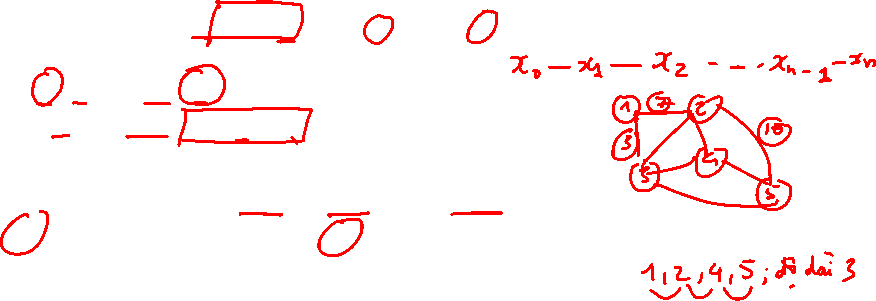 x₀ — x₁ — x₂ - - - xₙ₋₁ - xₙ
1 7 2
10
3
3 4
5
1, 2, 4, 5; độ dài 3